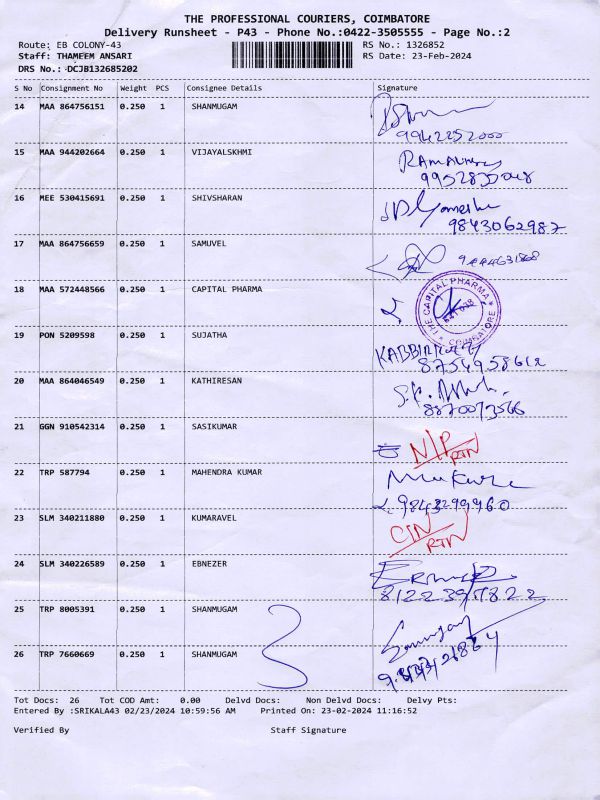 THE PROFESSIONAL COURIERS, COIMBATORE
Delivery Runsheet - P43 - Phone No.:0422-3505555 - Page No.:2
Route: EB COLONY-43 RS No.: 1326852
Staff: THAMEEM ANSARI RS Date: 23-Feb-2024
DRS No.: DCJB132685202
S No Consignment No Weight PCS Consignee Details Signature
14 MAA 864756151 0.250 1 SHANMUGAM
9942252000
15 MAA 944202664 0.250 1 VIJAYALSKHMI
16 MEE 530415691 0.250 1 SHIVSHARAN
9843062987
17 MAA 864756659 0.250 1 SAMUVEL
18 MAA 572448566 0.250 1 CAPITAL PHARMA
THE CAPITAL PHARMA
COIMBATORE
19 PON 5209598 0.250 1 SUJATHA
8754958612
20 MAA 864046549 0.250 1 KATHIRESAN
21 GGN 910542314 0.250 1 SASIKUMAR
N/P RTN
22 TRP 587794 0.250 1 MAHENDRA KUMAR
23 SLM 340211880 0.250 1 KUMARAVEL
RTN
24 SLM 340226589 0.250 1 EBNEZER
25 TRP 8005391 0.250 1 SHANMUGAM
26 TRP 7660669 0.250 1 SHANMUGAM
Tot Docs: 26 Tot COD Amt: 0.00 Delvd Docs: Non Delvd Docs: Delvy Pts:
Entered By :SRIKALA43 02/23/2024 10:59:56 AM Printed On: 23-02-2024 11:16:52
Verified By Staff Signature